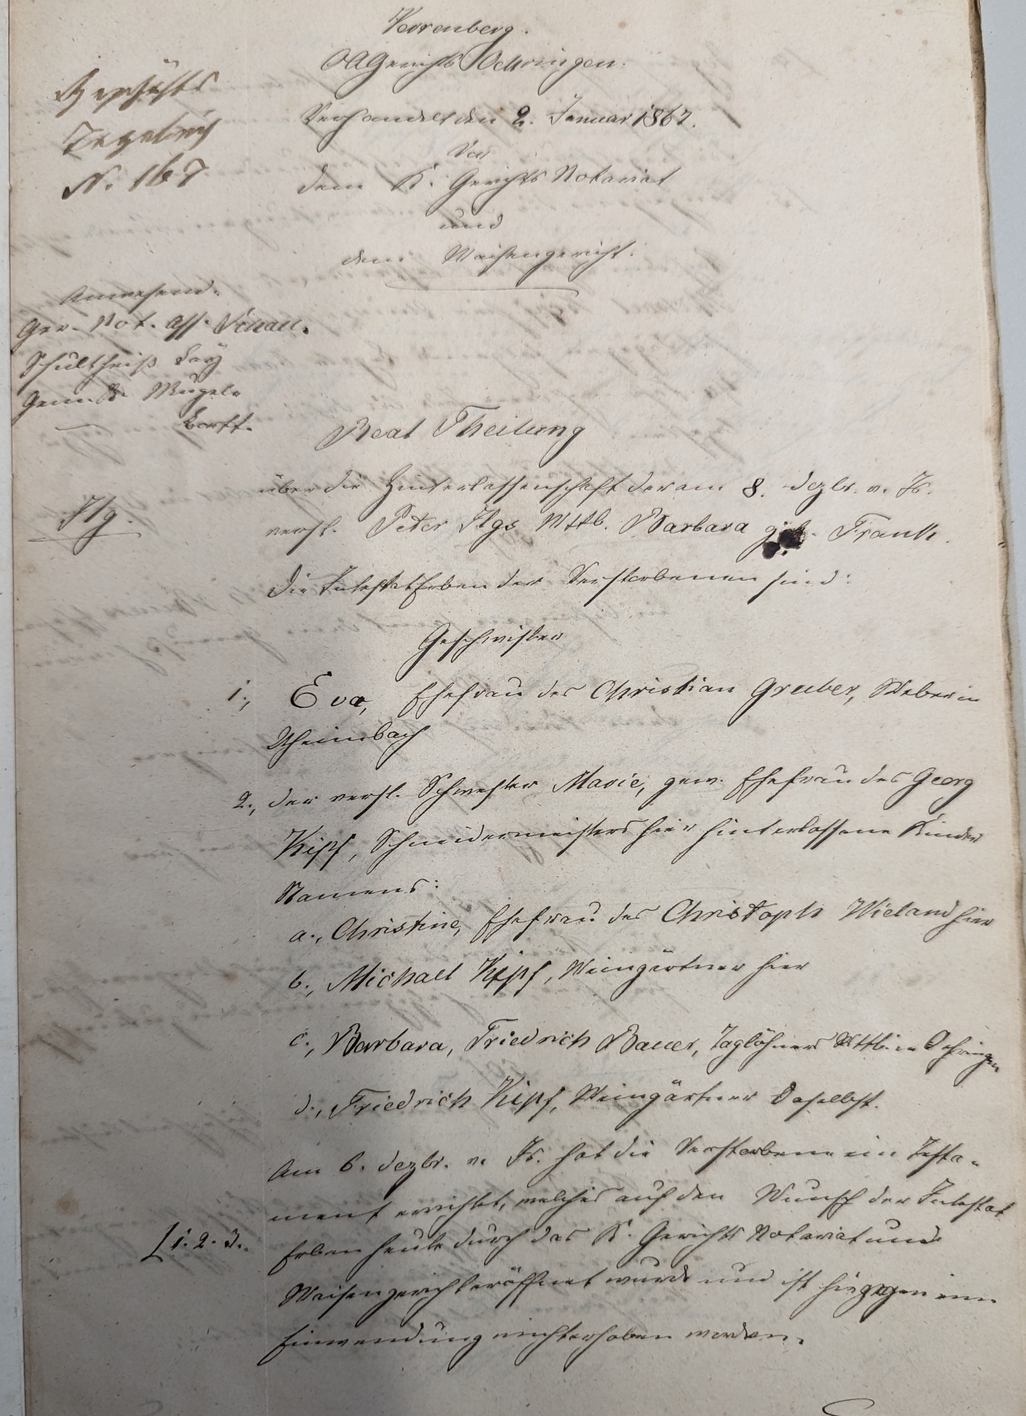 Verrenberg.
OAGerichts Oehringen.
Geschäfts
Tagebuch
N. 167
Verhandelt den 2. Januar 1867.
Vor
dem K. Gerichts Notariat
und
dem Waisengericht.
Anwesend.
Ger. Not. Ass.
Schultheiß
Gemdr.
Real Theilung
über die Hinterlassenschaft der am 8. Dezbr. v. Js.
Ilg.
verst. Peter Ilgs Wttb. Barbara geb. Frank.
Die IntestatErben der Verstorbenen sind:
Geschwister
1., Eva, Ehefrau des Christian Gruber, Weber in
2., der verst. Schwester Marie, gew. Ehefrau des Georg
Kipf, Schneidermeisters hier hinterlassene Kinder
Namens:
a., Christine, Ehefrau des Christoph Wieland hier
b., Michael Kipf, Weingärtner hier
c., Barbara, Friedrich Bauer, Taglöhners Wttb. in Oehringen
d., Friedrich Kipf, Weingärtner daselbst.
Am 6. Dezbr. v. Js. hat die Verstorbene ein Testa-
ment errichtet, welches auf den Wunsch der Intestat
[1. 2. d.
Erben heute durch das K. Gerichts Notariat und
Waisengericht eröffnet wurde und ist hiegegen eine
Einwendung nicht erhoben worden.